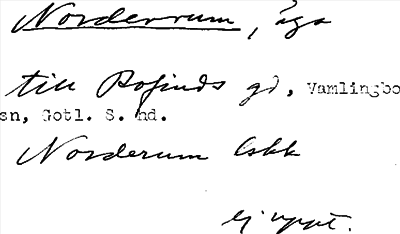 Norderrum, äga
till Rofinds gd, Vamlingbo
sn, Gotl. S. hd.
Norderum Eskk
ej uppt.